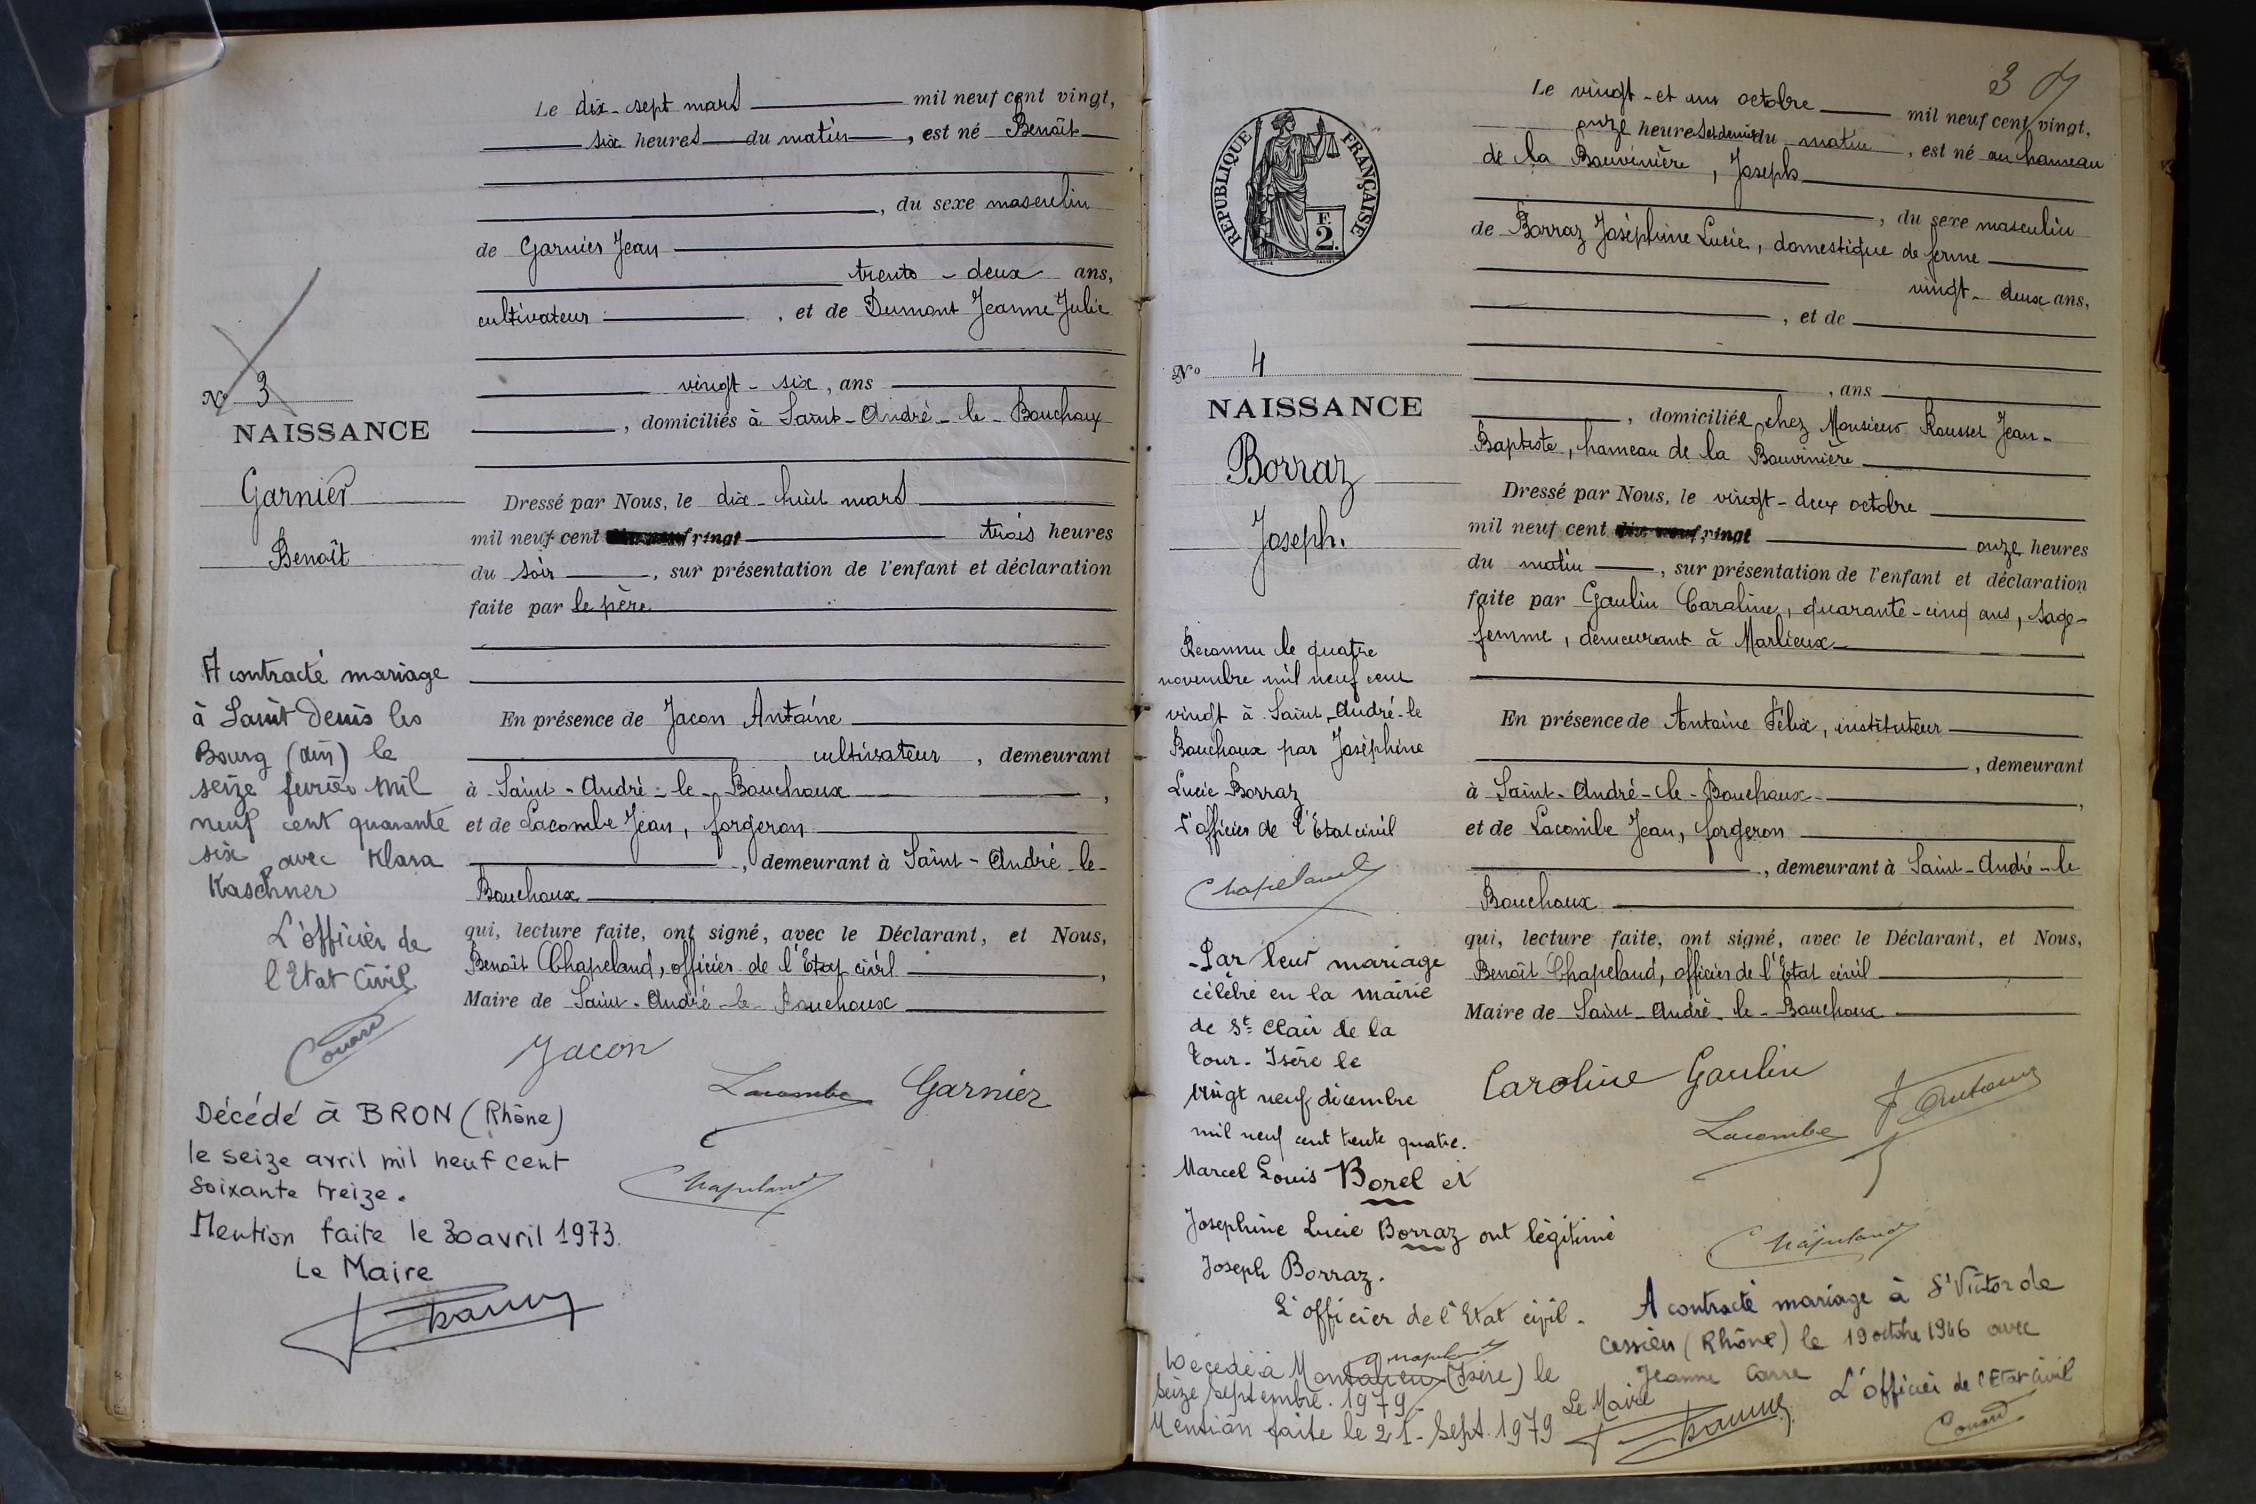 Le dix-sept mars mil neuf cent vingt,
six heures du matin, est né Benoît
, du sexe masculin
de Garnier Jean
trente-deux ans,
cultivateur, et de Dumont Jeanne Julie
vingt-six, ans
, domiciliés à Saint-André-le-Bouchoux
Dressé par Nous, le dix-huit mars
mil neuf cent vingt trois heures
du soir, sur présentation de l'enfant et déclaration
faite par le père
En présence de Jacon Antoine
cultivateur, demeurant
à Saint-André-le-Bouchoux,
et de Lacombe Jean, forgeron
, demeurant à Saint-André-le-
Bouchoux
qui, lecture faite, ont signé, avec le Déclarant, et Nous,
Benoît Chapeland, officier de l'Etat civil,
Maire de Saint-André-le-Bouchoux
Jacon
Lacombe Garnier
Chapeland
No 3
NAISSANCE
Garnier
Benoît
A contracté mariage
à Saint Denis les
Bourg (Ain) le
seize fevrier mil
neuf cent quarante
six avec Klara
Kaschner
L'officier de
l'Etat Civil
Couard
Décédé à BRON (Rhône)
le seize avril mil neuf cent
soixante treize.
Mention faite le 30 avril 1973.
Le Maire
3
Le vingt-et un octobre mil neuf cent vingt,
onze heures et demie du matin, est né au hameau
de la Bouvinière, Joseph
, du sexe masculin
de Borraz Joséphine Lucie, domestique de ferme
vingt-deux ans,
, et de
, ans
, domiciliée chez Monsieur Rousset Jean-
Baptiste, hameau de la Bouvinière
Dressé par Nous, le vingt-deux octobre
mil neuf cent vingt onze heures
du matin, sur présentation de l'enfant et déclaration
faite par Gaulin Caroline, quarante-cinq ans, sage-
femme, demeurant à Marlieux
En présence de Antoine Félix, instituteur
, demeurant
à Saint-André-le-Bouchoux,
et de Lacombe Jean, forgeron
, demeurant à Saint-André-le
Bouchoux
qui, lecture faite, ont signé, avec le Déclarant, et Nous,
Benoît Chapeland, officier de l'Etat civil
Maire de Saint-André-le-Bouchoux
Caroline Gaulin
Lacombe F Antoine
Chapeland
A contracté mariage à St Victor de
Cessieu (Rhône) le 19 octobre 1946 avec
Jeanne Carre
L'officier de l'Etat Civil
Couard
RÉPUBLIQUE FRANÇAISE
F.
2.
No 4
NAISSANCE
Borraz
Joseph.
Reconnu le quatre
novembre mil neuf cent
vingt à Saint-André-le
Bouchoux par Joséphine
Lucie Borraz
L'officier de l'Etat civil
Chapeland
Par leur mariage
célébré en la mairie
de St Clair de la
Tour. Isère le
vingt neuf décembre
mil neuf cent trente quatre.
Marcel Louis Borel et
Josephine Lucie Borraz ont légitimé
Joseph Borraz.
L'officier de l'Etat civil.
Chapeland
Décédé à (Isère) le
seize septembre. 1979.
Mention faite le 21-Sept. 1979
Le Maire